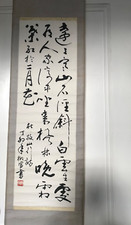 遠上寒山石徑斜白雲生處
有人家停車坐愛楓林晚霜
葉紅於二月花
杜牧山行詩
書